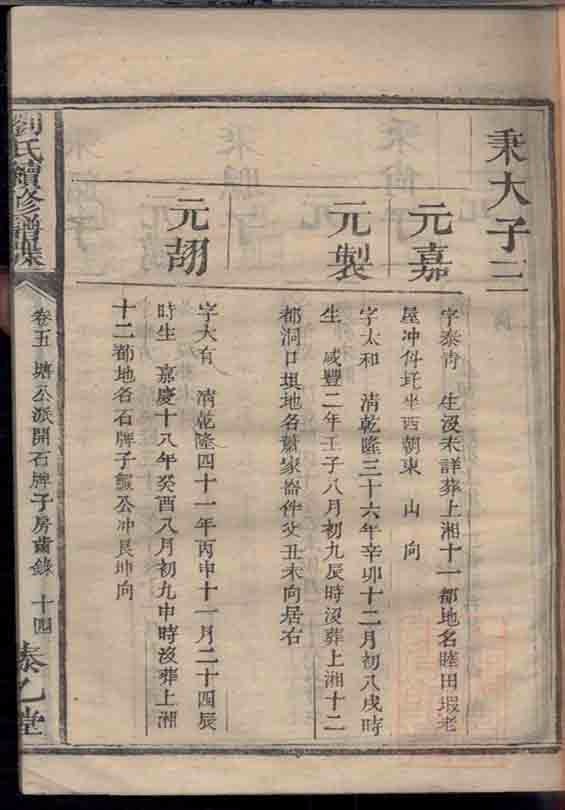 秉大子三
元嘉
字泰青　生沒未詳葬上湘十一都地名睦田塅老
屋冲仵圫坐西朝東　山　向
元製
字太和　清乾隆三十六年辛卯十二月初八戌時
生　咸豐二年壬子八月初九辰時沒葬上湘十二
都洞口垻地名蕭家崙件父丑未向居右
元翓
字大有　清乾隆四十一年丙申十一月二十四辰
時生　嘉慶十八年癸酉八月初九申時沒葬上湘
十二都地名石牌子公冲艮坤向
劉氏續修譜牒
卷五　塘公派開石牌子房齒錄　十四
泰乙堂